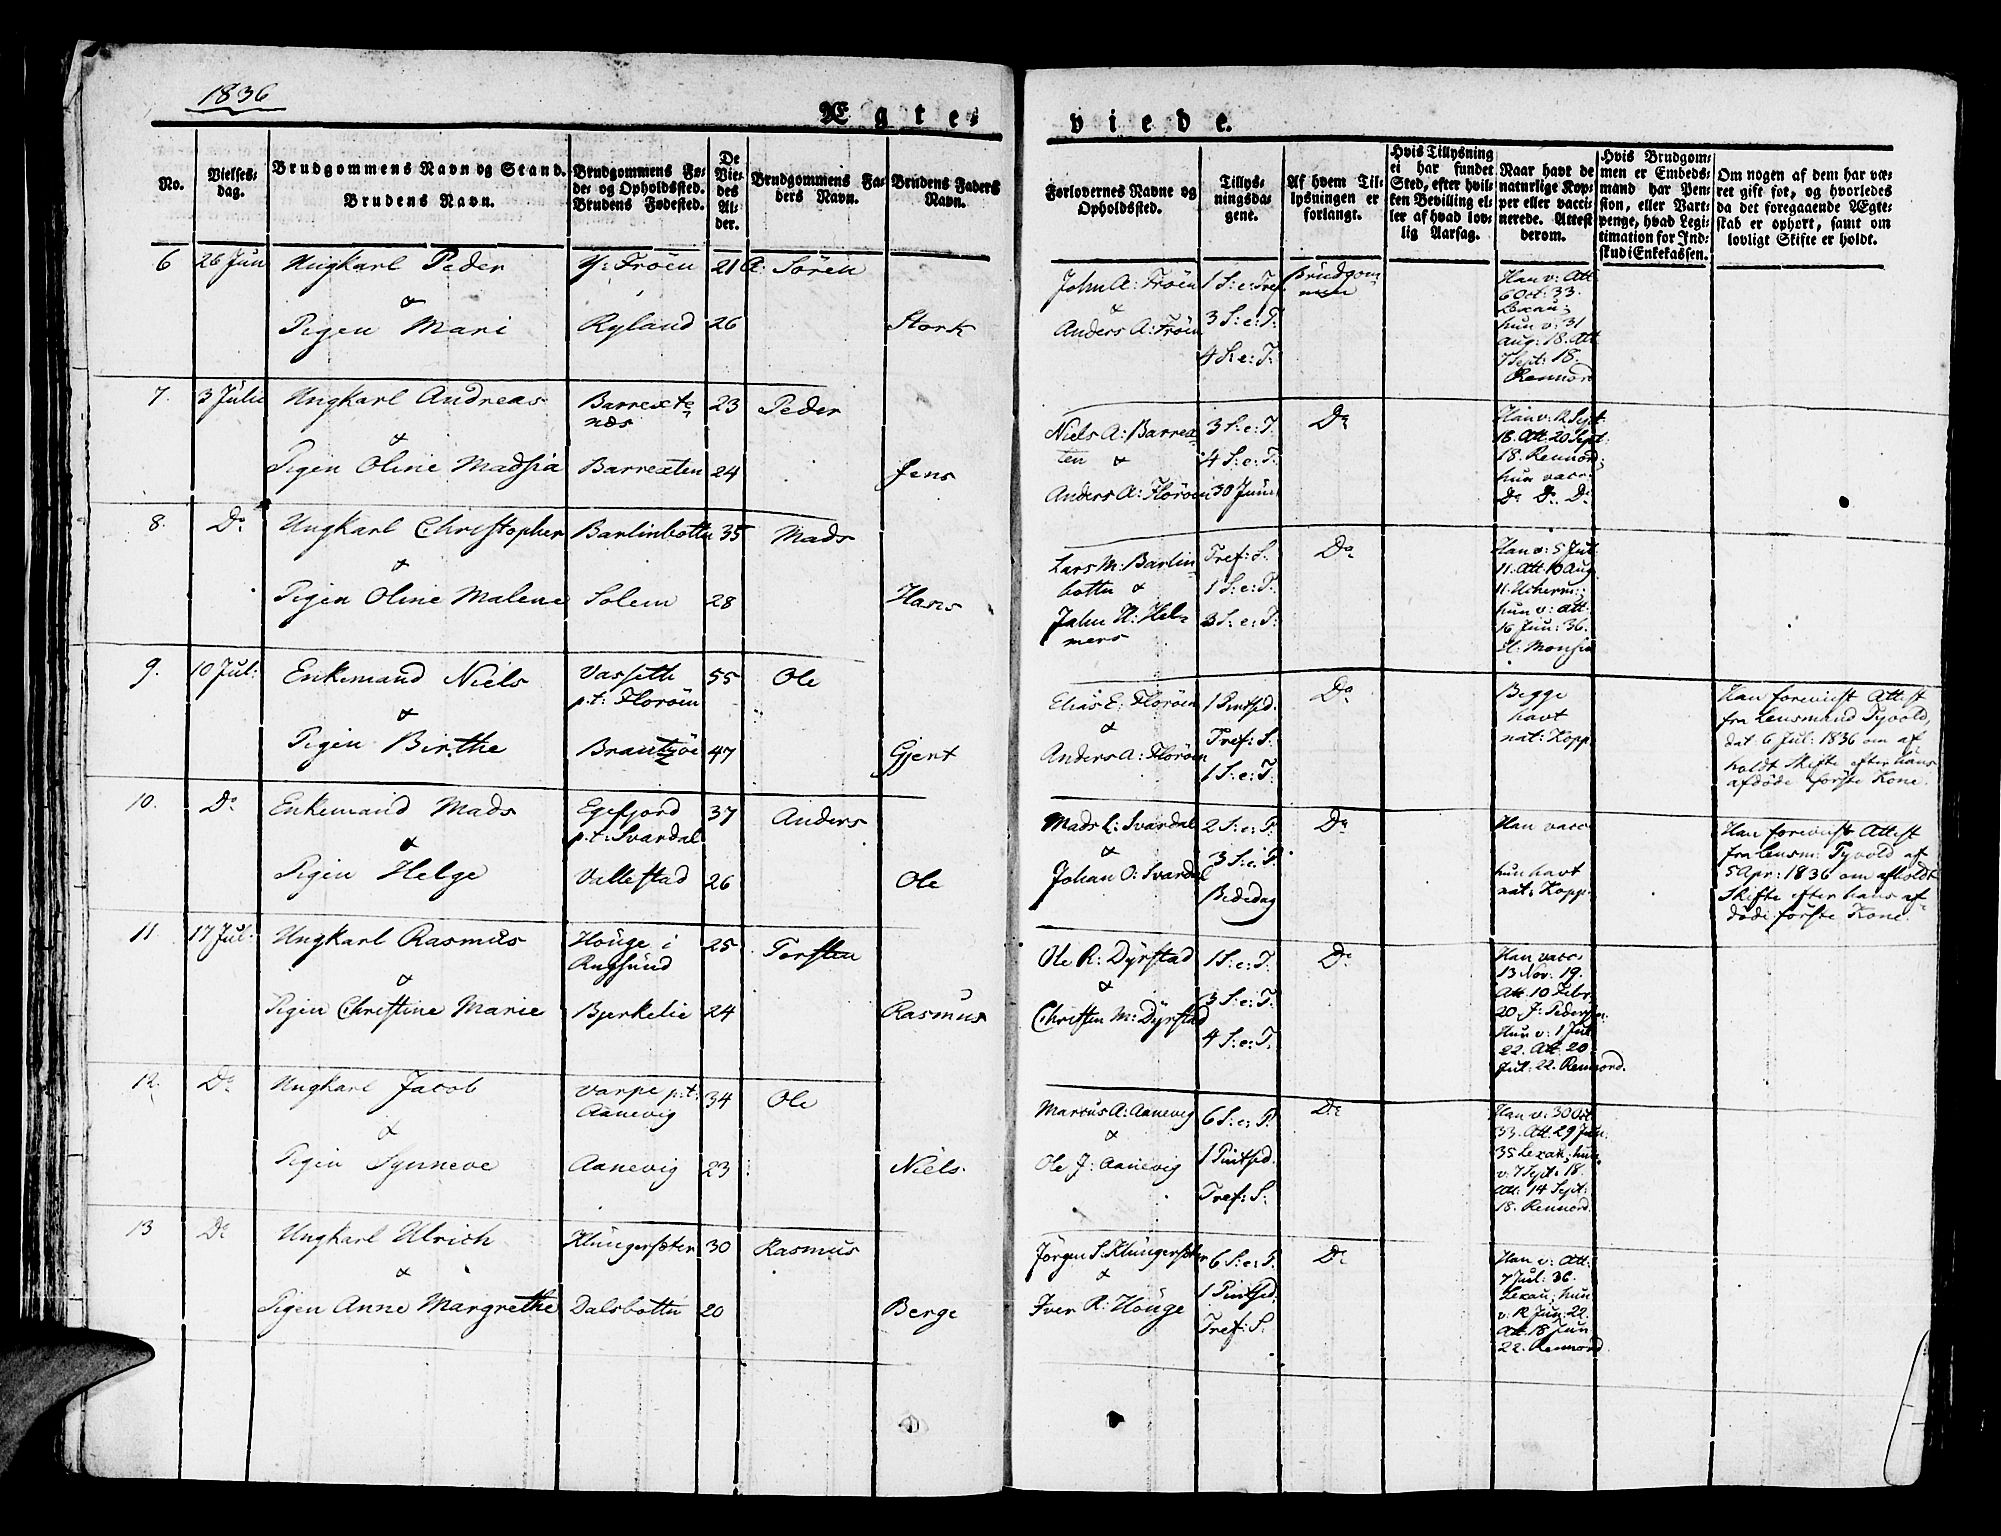 1836
Ægte-
viede.
No.
Vielses-
dag.
Brudgommens Navn og Stand.
Brudens Navn.
Brudgommens Fø-
de- og Opholdssted.
Brudens Fødested.
De
Vie-
des
Al-
der.
Brudgommens Fa-
ders Navn.
Brudens Faders
Navn.
Forlovernes Navne og
Opholdssted.
Tillys-
ningsda-
gene.
Af hvem Til-
lysningen er
forlangt.
Hvis Tillysning
ei har fundet
Sted, efter hvil-
ken Bevilling el-
ler af hvad lov-
lig Aarsag.
Naar havt de
naturlige Kop-
per eller vacci-
nerede. Attest
derom.
Hvis Brudgom-
men er Embeds-
mand har Pen-
sion, eller Vart-
penge, hvad Legi-
timation for Ind-
skud i Enkekassen.
Om nogen af dem har væ-
ret gift før, og hvorledes
da det foregaaende Ægte-
skab er ophørt, samt om
lovligt Skifte er holdt.
6 26 Jun Ungkarl Peder Y: Fröen 21 A: Sören
&
Pigen Mari Ryland 26 Stork
John A: Fröen 1 S: e: Tref. Brudgom-
men
&
Anders A: Fröen 3 S: e: T:
4 S: e: T:
Han v: Att
6 Oct: 33.
Lexau;
hun v: 31
Aug: 18. Att
7 Sept: 18.
Rennord
7. 3 Julii Ungkarl Andreas Barrexte-
næs 23 Peder
&
Pigen Oline Madsia Barrexten 24 Jens
Niels A: Barrex-
ten &
Anders A: Floröen
3 S: e: T.
4 S: e: T.
30 Juni
Do
Han v: 12 Sept
18. Att. 20 Sept:
18. Rennord;
hun vacc:
Do Do Do
8. Do Ungkarl Christopher Barlinbotten 35 Mads
&
Pigen Oline Malene Solem 28 Hans
Lars M: Barlin-
botten &
John H: Hel-
mers
Tref: S.
1 S: e: T:
3 S: e: T:
Do
Han v: 5 Jul
11. Att. 10 Aug
11.
hun v: Att:
16 Jun: 36.
9. 10 Jul: Enkemand Niels Vasseth
p.t: Floröen 55 Ole
&
Pigen Birthe Brantzöe 47 Gjert
Elias E: Floröen
&
Anders A: Floröen
1 Pintsd.
Tref: S.
1 S: e: T:
Do
Begge
havt
nat: Kopp.
Han foreviist Attest
fra Lensmand Tyvold,
dat. 6 Jul: 1836 om af-
holdt Skifte efter hans
afdöde förste Kone.
10. Do Enkemand Mads Egefjord
p.t: Svardal 37 Anders
&
Pigen Helge Vallestad 26 Ole
Mads L: Svardal
&
Johan O: Svardal
2 S: e: P:
3 S: e: P:
Bededag
Do
Han vacc:
hun havt
nat: Kopp.
Han foreviist Attest
fra Lensm: Tyvold af
5 Apr: 1836 om afholdt
Skifte efter hans af-
döde förste Kone.
11. 17 Jul: Ungkarl Rasmus Houge i
Rugsund 25 Torsten
&
Pigen Christine Marie Bjerkelie 24 Rasmus
Ole R: Dyrstad
&
Christen M: Dyrstad
1 S: e: T.
3 S: e: T:
4 S: e: T:
Do
Han vacc:
13 Nov: 19.
Att. 10 Febr:
20 J: Pedersen.
Hun v: 1 Jul
22. Att. 20
Jul: 22. Rennord.
12. Do Ungkarl Jacob Varpe p.t:
Aanevig 34 Ole
&
Pigen Synneve Aanevig 23 Niels.
Marcus A: Aanevig
&
Ole J: Aanevig
6 S: e: P:
1 Pintsd.
Tref: S:
Do
Han v: 30 Oct
33. Att. 29 Jun:
35 Lexau; hun
v: 7 Sept: 18.
Att: 14 Sept:
18. Rennord.
13 Do Ungkarl Ulrich Klungersæter 30 Rasmus
&
Pigen Anne Margrethe Dalsbotten 20 Berge
Jörgen S. Klungersæter
&
Iver R: Houge
6 S: e: P:
1 Pintsd.
Tref: S:
Do
Han v: Att:
7 Jul: 36.
Lexau; hun
v: 12 Jun: 22.
Att. 18 Jun
22. Rennord.